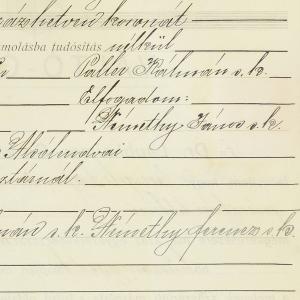 ázhetven koronát
molásba tudósítás nélkül
Paller Kálmán s. k.
Elfogadom:
Némethy János s. k.
Alsólendvai
ztárnál.
mán s. k. Némethy ferencz s. k.